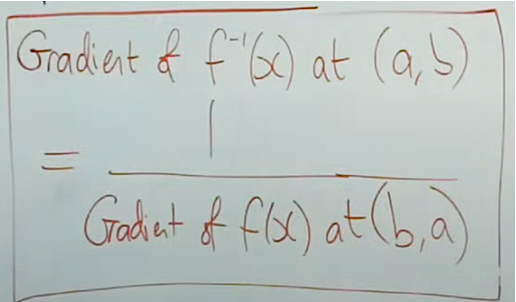 Gradient of f⁻¹(x) at (a,b)
1
=
Gradient of f(x) at (b,a)